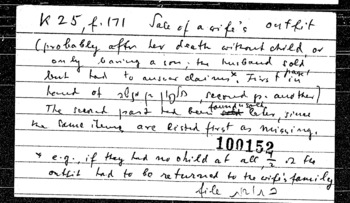 K 25, f. 171 Sale of a wife's outfit
(probably after her death without child, or
only having a son; the husband sold
but had to answer claims*. First in
hand of, second p. another)
The second part had been found later, since
the same items are listed first as missing.
100152
* e.g., if they had no child at all, ½ of the
outfit had to be returned to the wife's family
file